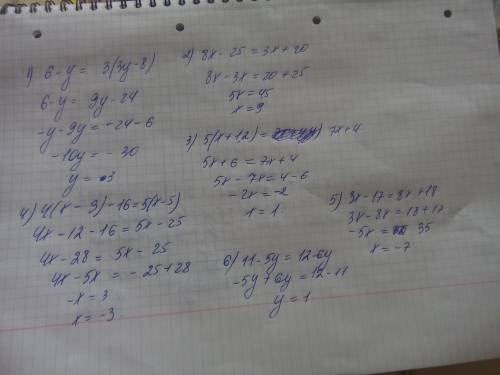 1) 6-y = 3(3y-8)
6-y = 9y-24
-y-9y = -24-6
-10y = -30
y = 3
2) 8x-25=3x+20
8x-3x=20+25
5x=45
x=9
3) 5(x+1,2)= 7x+4
5x+6=7x+4
5x-7x=4-6
-2x=-2
1=1
4) 4(x-3)-16=5(x-5)
4x-12-16=5x-25
4x-28=5x-25
4x-5x=-25+28
-x=3
x=-3
5) 3x-17=8x+18
3x-8x=18+17
-5x= 35
x=-7
6) 11-5y=12-6y
-5y+6y=12-11
y=1